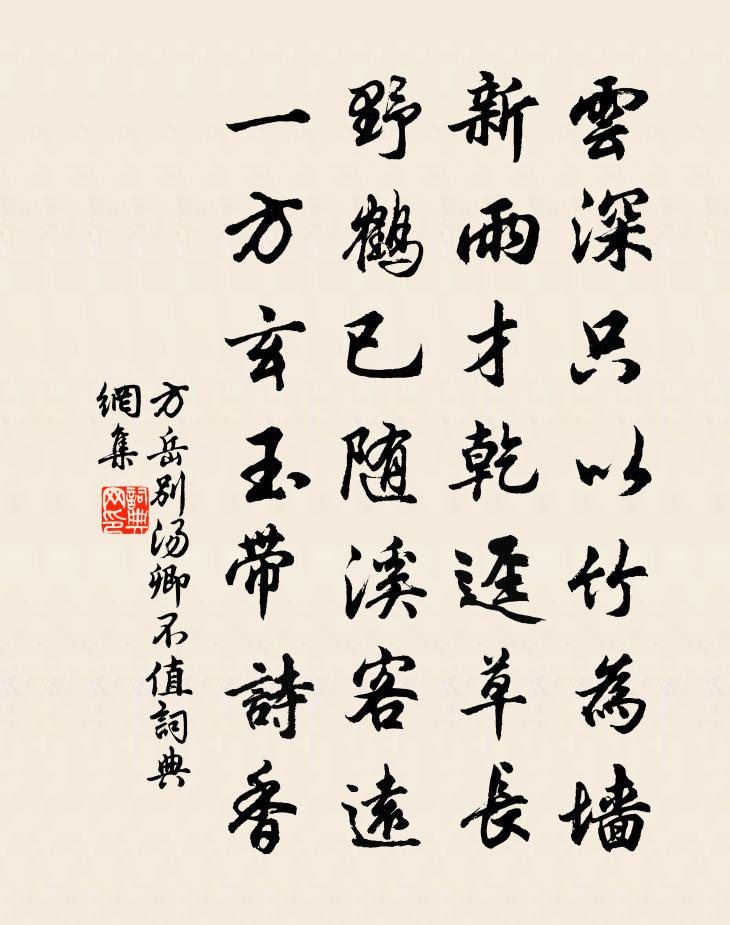 雲深只以竹為墻
新雨才乾遲草長
野鶴已随溪客遠
一方玄玉帶詩香
方岳别湯卿不值詞典
網集
詞典網印